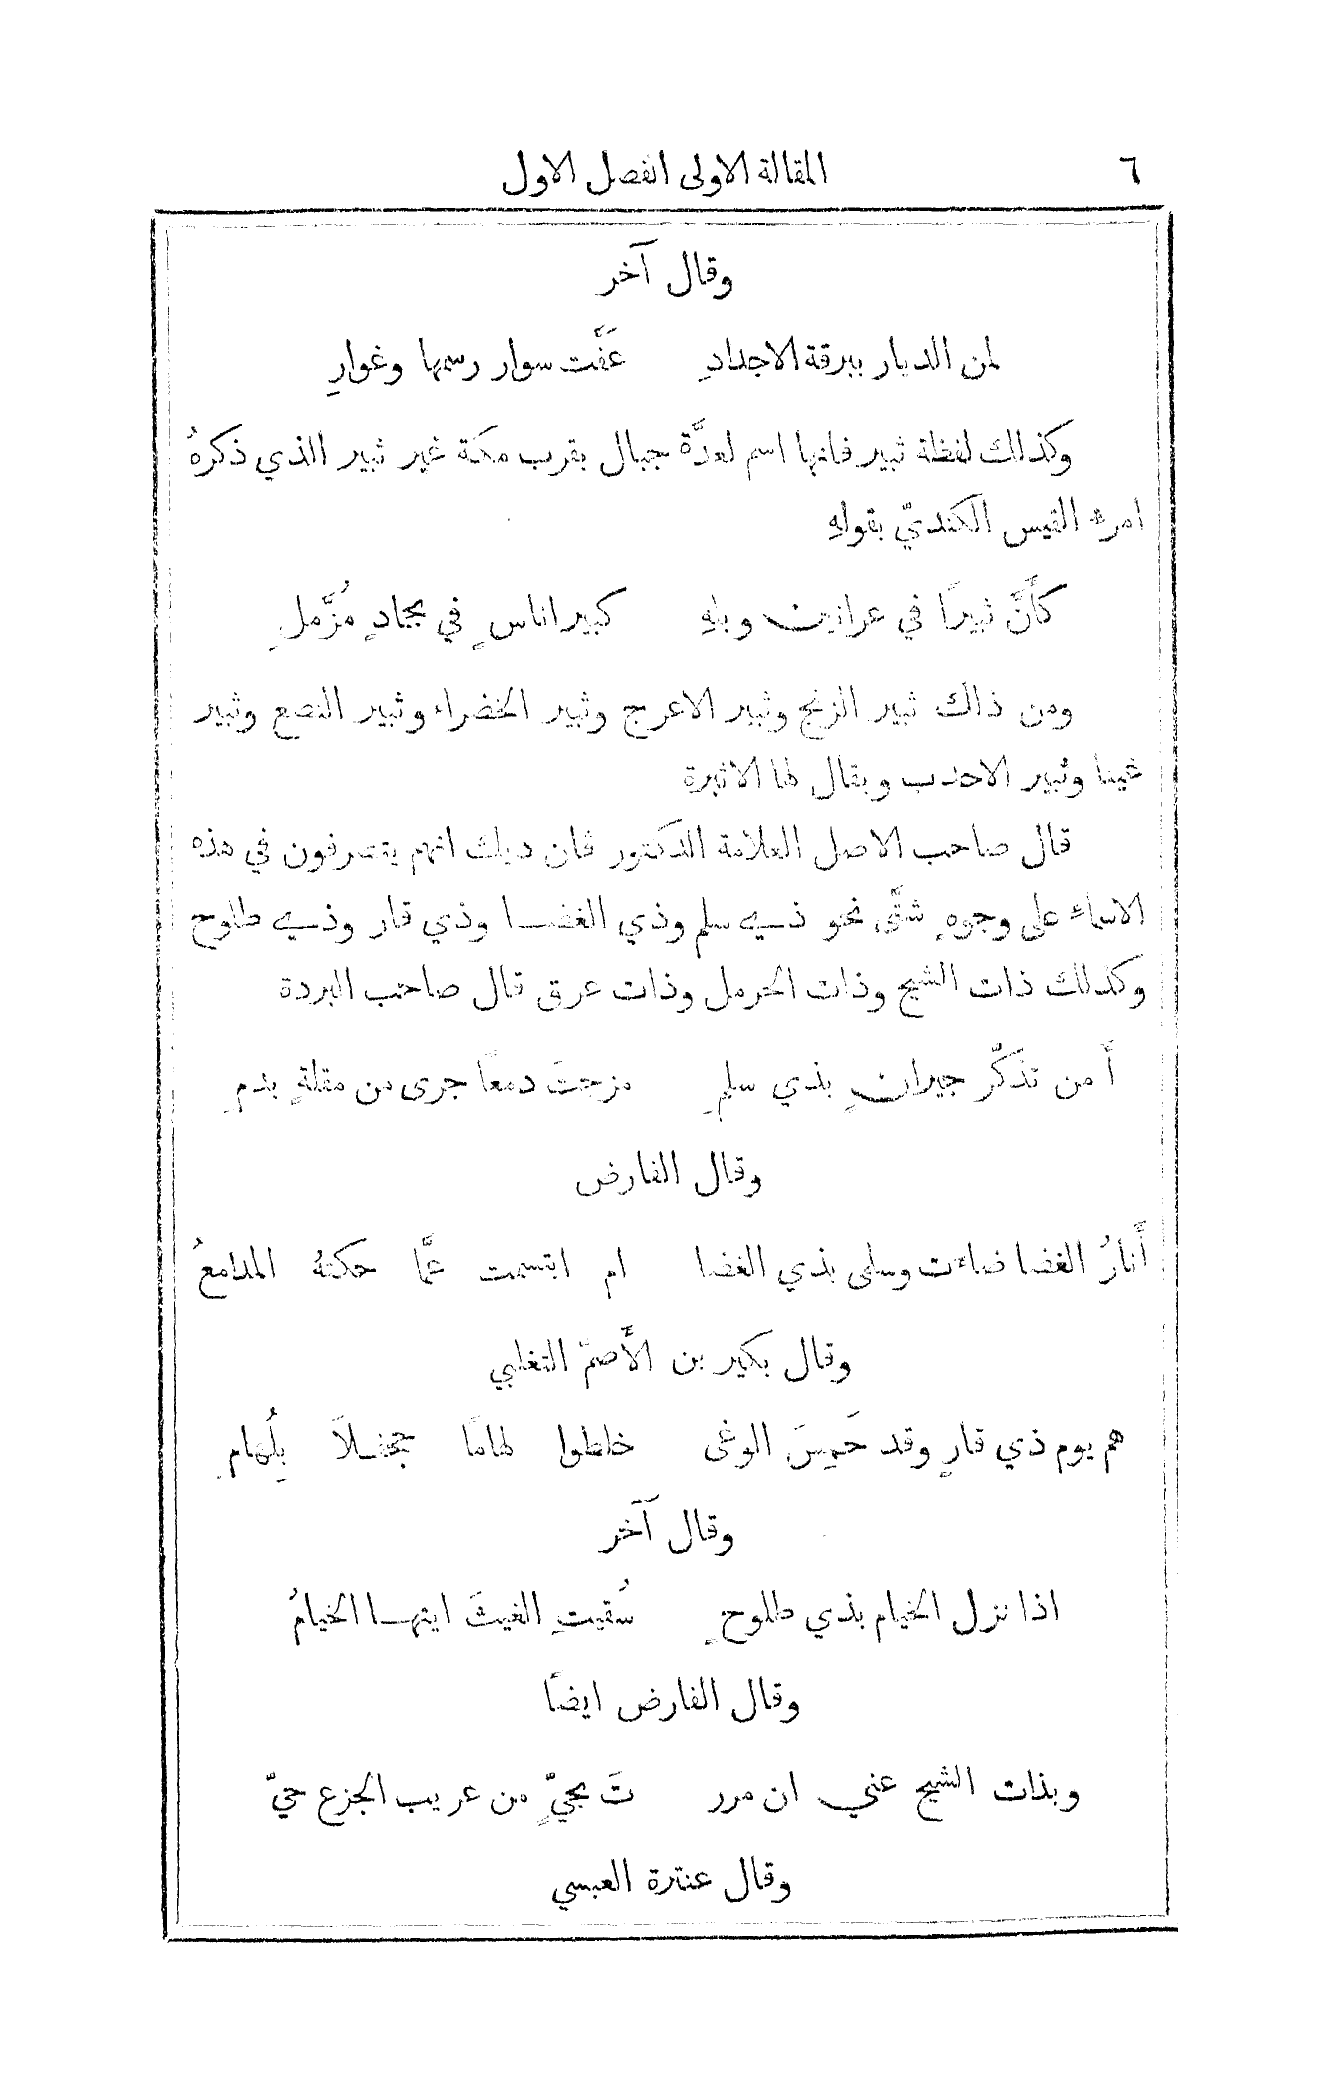 ٦ المقالة الاولى الفصل الاول
وقال آخر
لمن الديار ببرقة الاجدادِ عَفَّت سوار رسمها وغوارِ
وكذلك لفظة ثبير فانها اسم لعدَّة جبال بقرب مكة غير ثبير الذي ذكرهُ
امره القيس الكنديّ بقولهِ
كأَنَّ ثبيرًا في عرانين وبلهِ كبير اناسٍ في بجادٍ مُزَّملِ
ومن ذلك ثبير الزنج وثبير الاعرج وثبير الخضراء وثبير النصع وثبير
غينا وثبير الاحدب ويقال لها الاثبرة
قال صاحب الاصل العلامة الدكتور فان ديك انهم يتصرفون في هذه
الاسماء على وجوهٍ شتَّى نحو ذي سلم وذي الغضا وذي قار وذي طلوح
وكذلك ذات الشيح وذات الحرمل وذات عرق قال صاحب البردة
أَ من تذكّر جيرانٍ بذي سلمٍ مزجتَ دمعًا جرى من مقلةٍ بدمِ
وقال الفارض
أَنارُ الغضا ضاءت وسلمى بذي الغضا ام ابتسمت عمَّا حكتهُ المدامعُ
وقال بكير بن الأَصمّ التغلبي
هم يوم ذي قارٍ وقد حَمِسَ الوغى خلطوا لهامًا جحفلاً بِلُهامِ
وقال آخر
اذا نزل الخيام بذي طلوحٍ سُقيتِ الغيثَ ايتها الخيامُ
وقال الفارض ايضًا
وبذات الشيح عني ان مرر تَ بحيٍّ من عريب الجزع حيّ
وقال عنترة العبسي